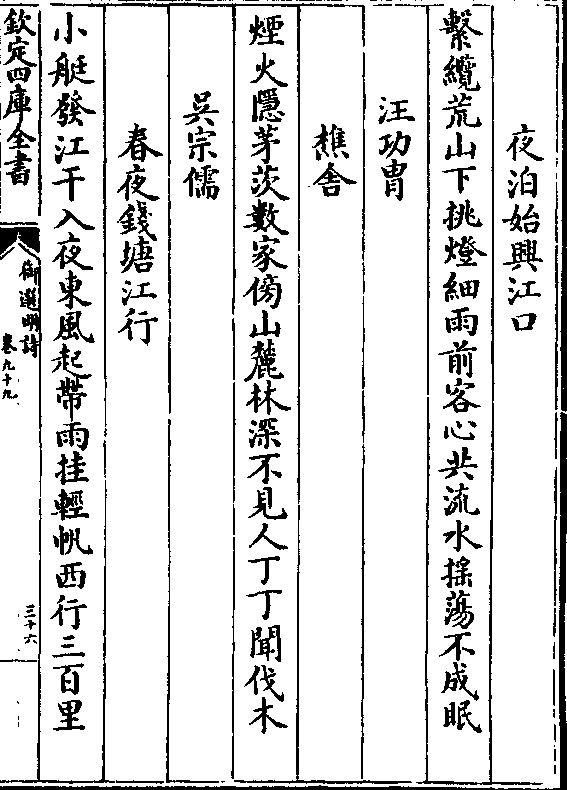 夜泊始興江口
繫纜荒山下挑燈細雨前客心共流水揺蕩不成眠
汪功胄
樵舍
煙火隱茅茨數家傍山麓林深不見人丁丁聞伐木
吳宗儒
春夜錢塘江行
小艇發江干入夜東風起帶雨挂輕帆西行三百里
欽定四庫全書
御選明詩
卷九十九
三十六